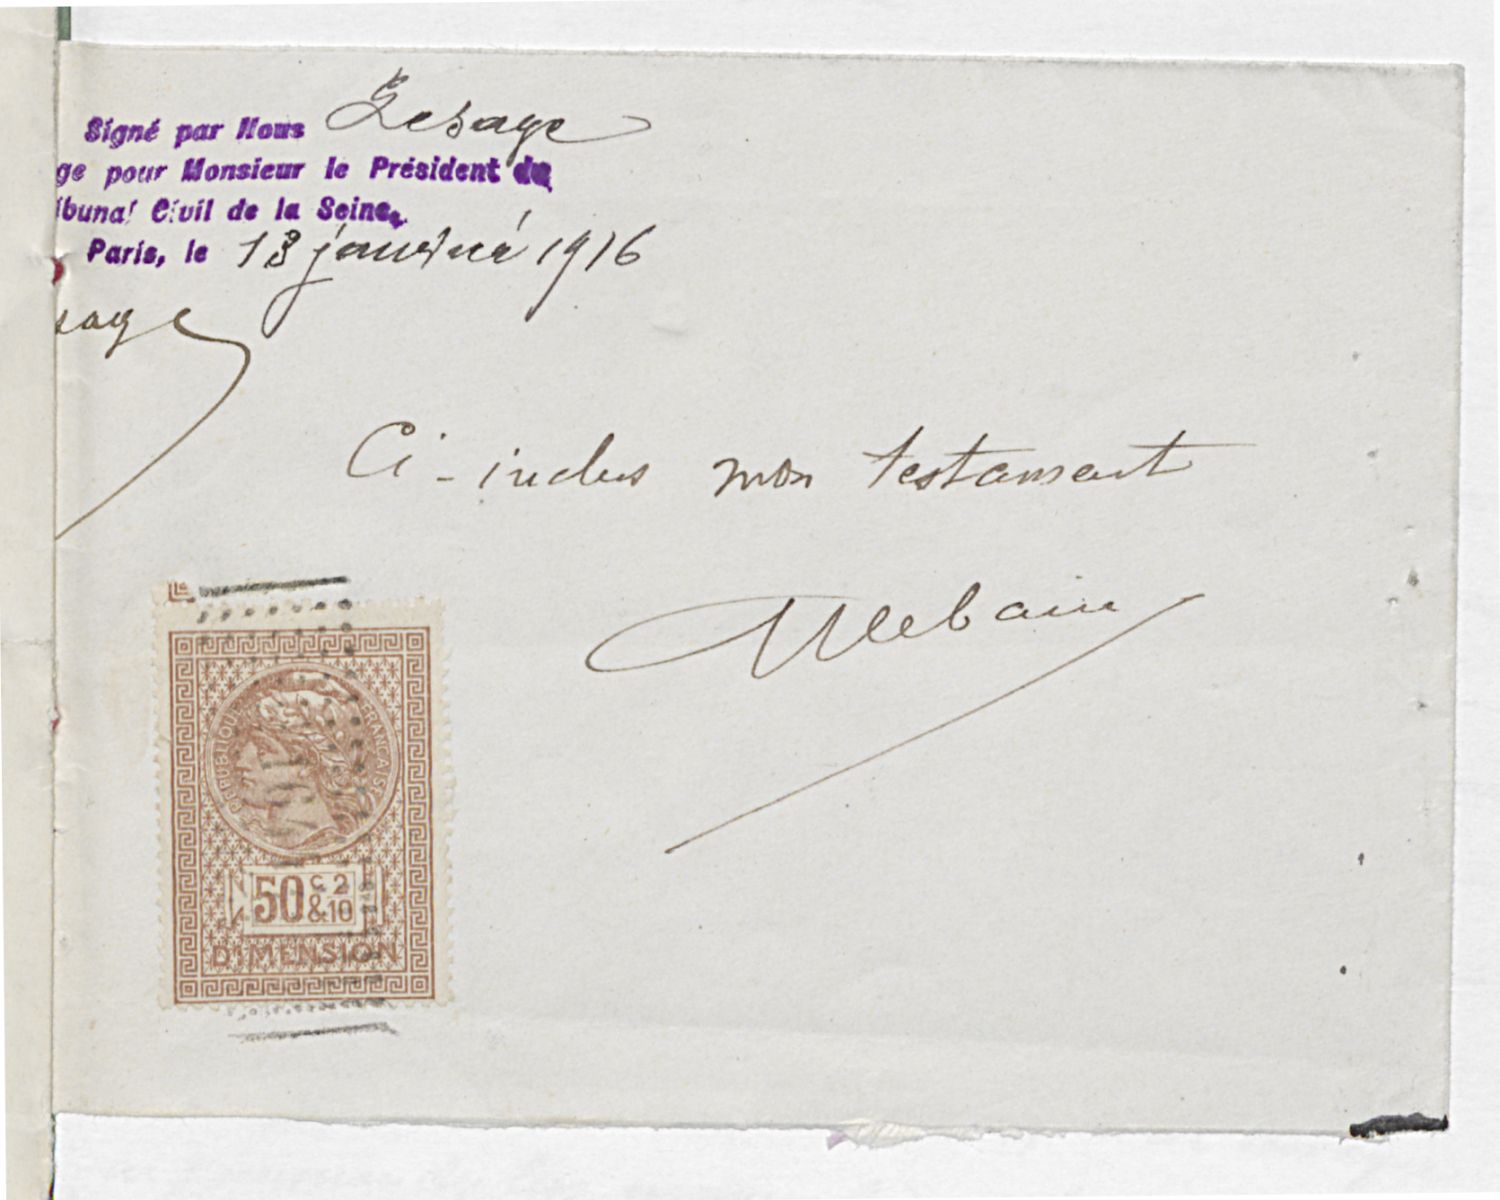 Signé par Nous Lesage
ge pour Monsieur le Président du
ibunal Civil de la Seine.
Paris, le 13 janvier 1916
sage
Ci-inclus mon testament
RÉPUBLIQUE FRANÇAISE
50 c 2
& 10
DIMENSION